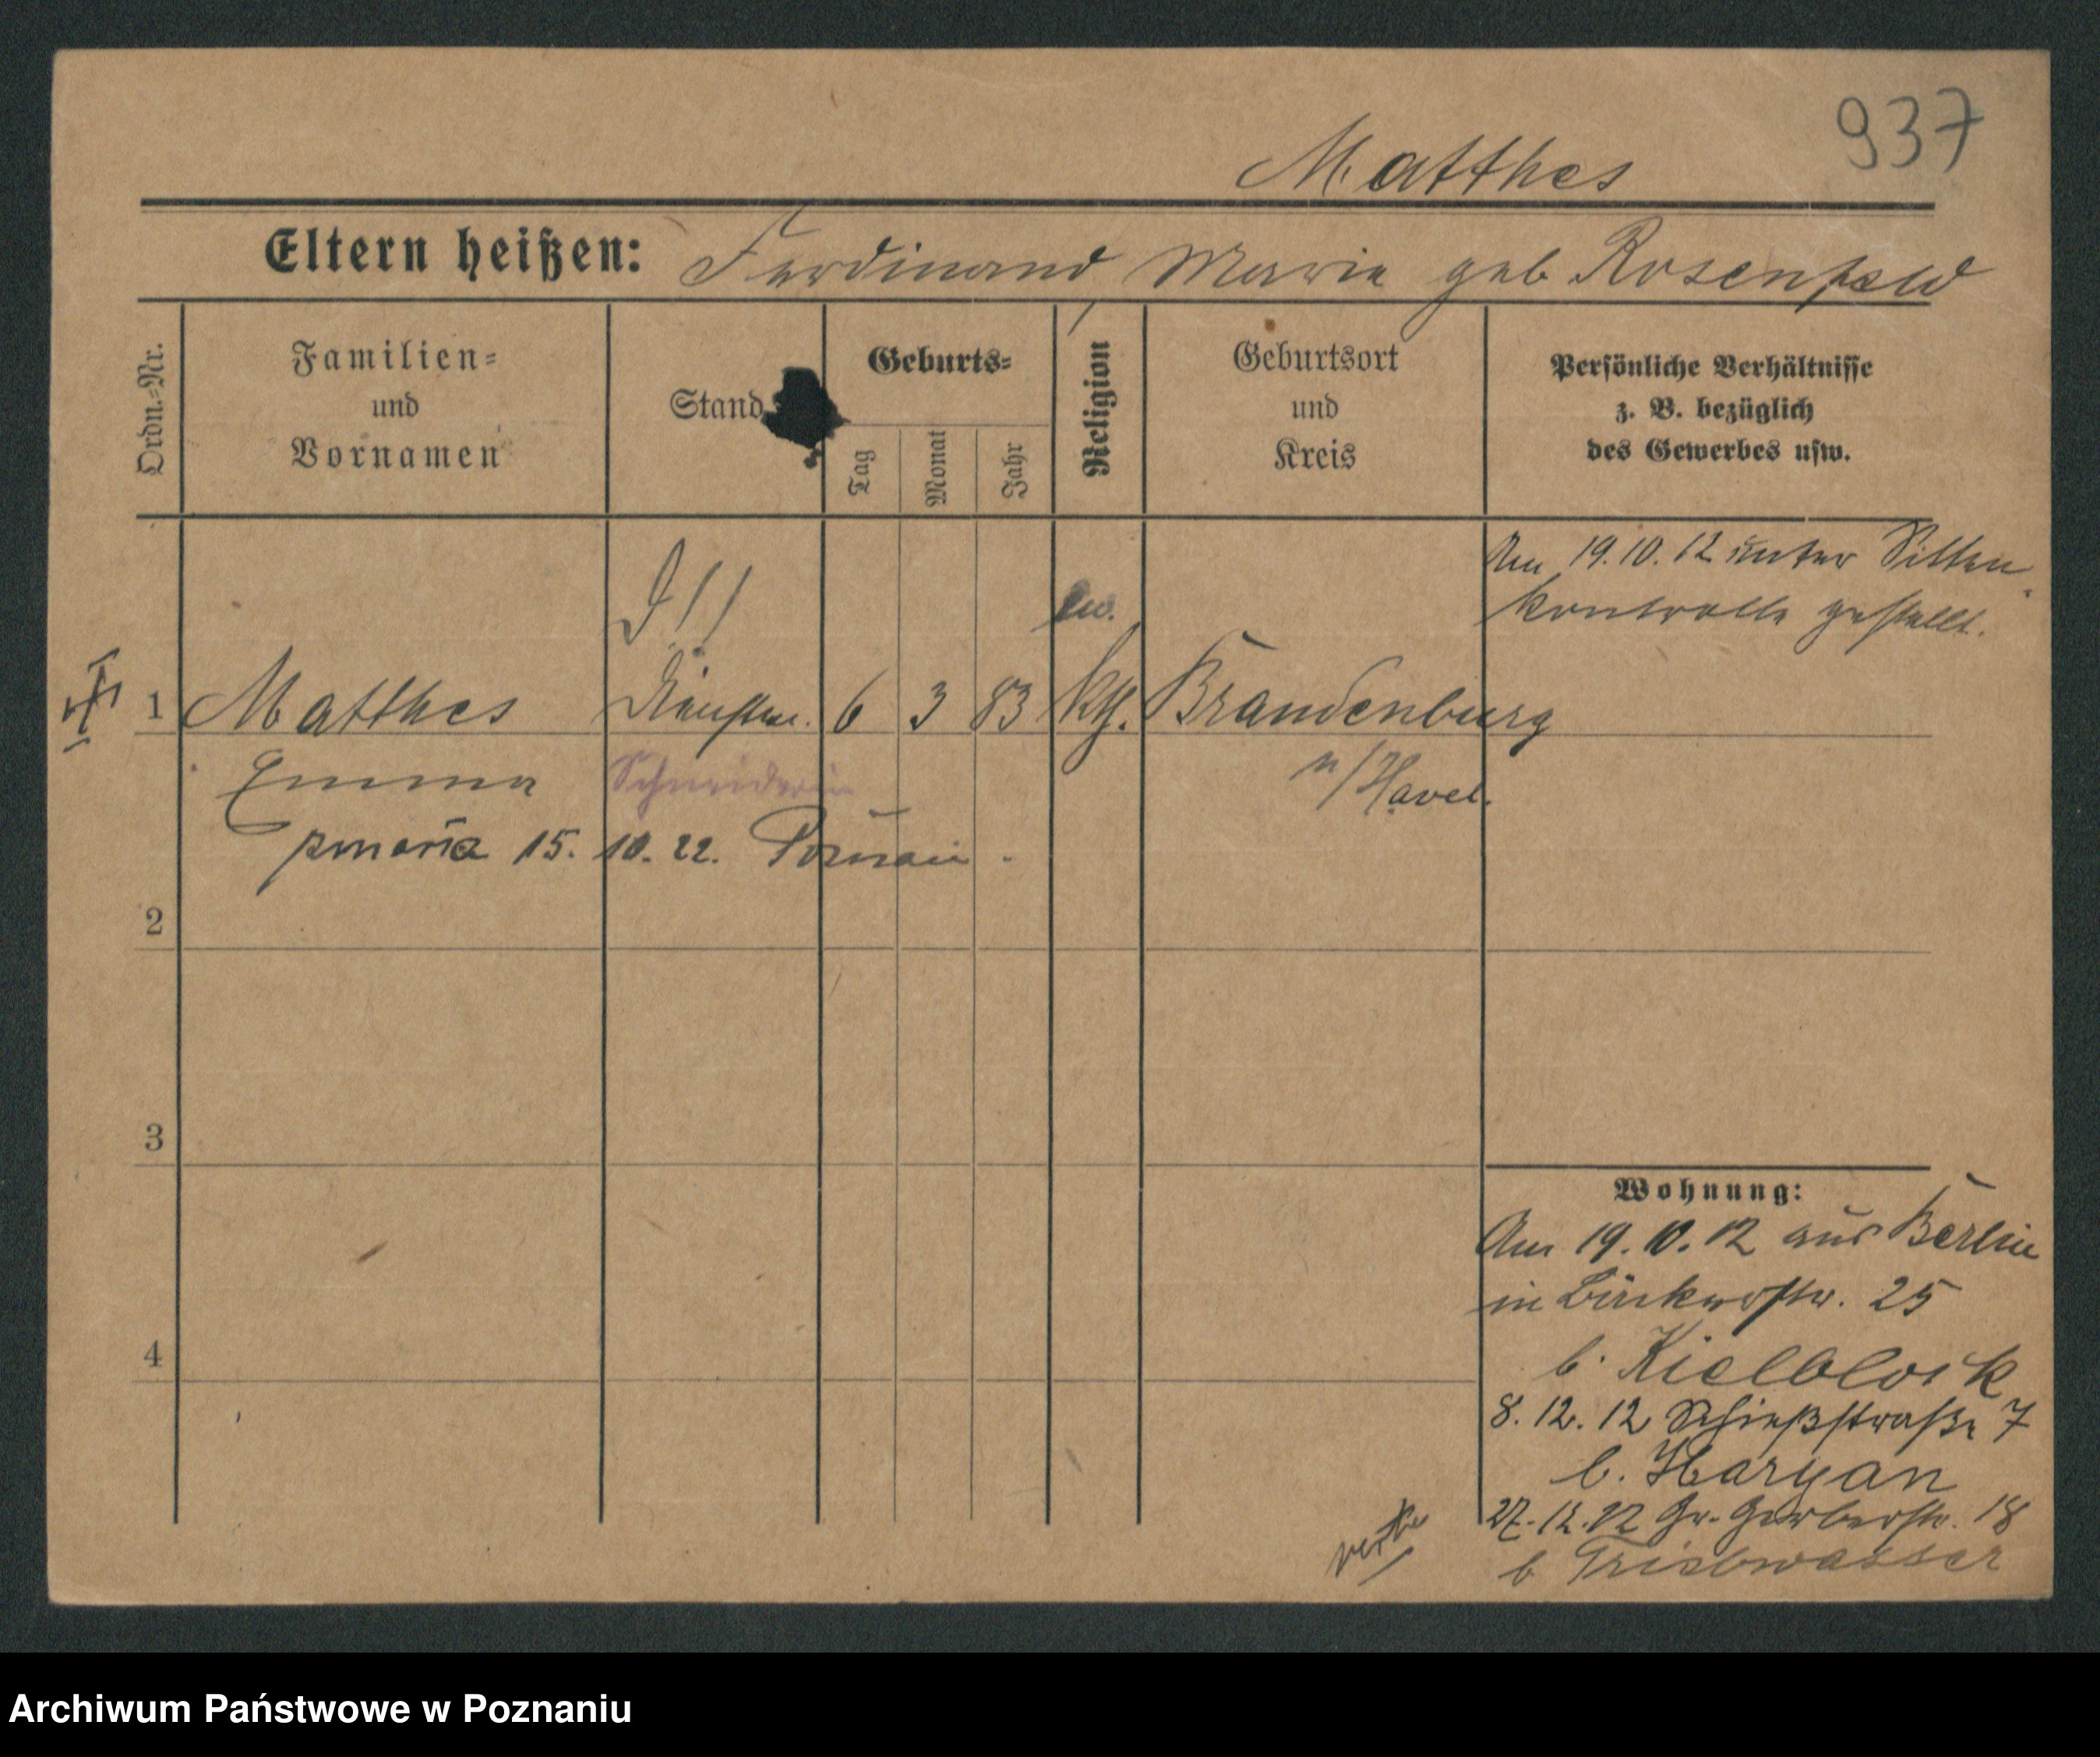 937
Matthes
Eltern heißen: Ferdinand Marie geb Rosenfeld
Ordn.=Nr.
Familien=
und
Vornamen
Stand
Geburts=
Tag
Monat
Jahr
Religion
Geburtsort
und
Kreis
Persönliche Verhältnisse
z. B. bezüglich
des Gewerbes usw.
Am 19.10.12 unter Sitten
kontrolle gestellt.
ev.
1 Matthes 6 3 83 kth. Brandenburg
Emma Schneiderin a/Havel.
zmarła 15. 10. 22. Poznań.
2
3
4
Wohnung:
Am 19.10.12 aus Berlin
in Bückerstr. 25
b. Kielblock
8. 12. 12 Schießstraße 7
b. Haryan
27.12.12 Gr. Gerberstr. 18
b Trinkwasser